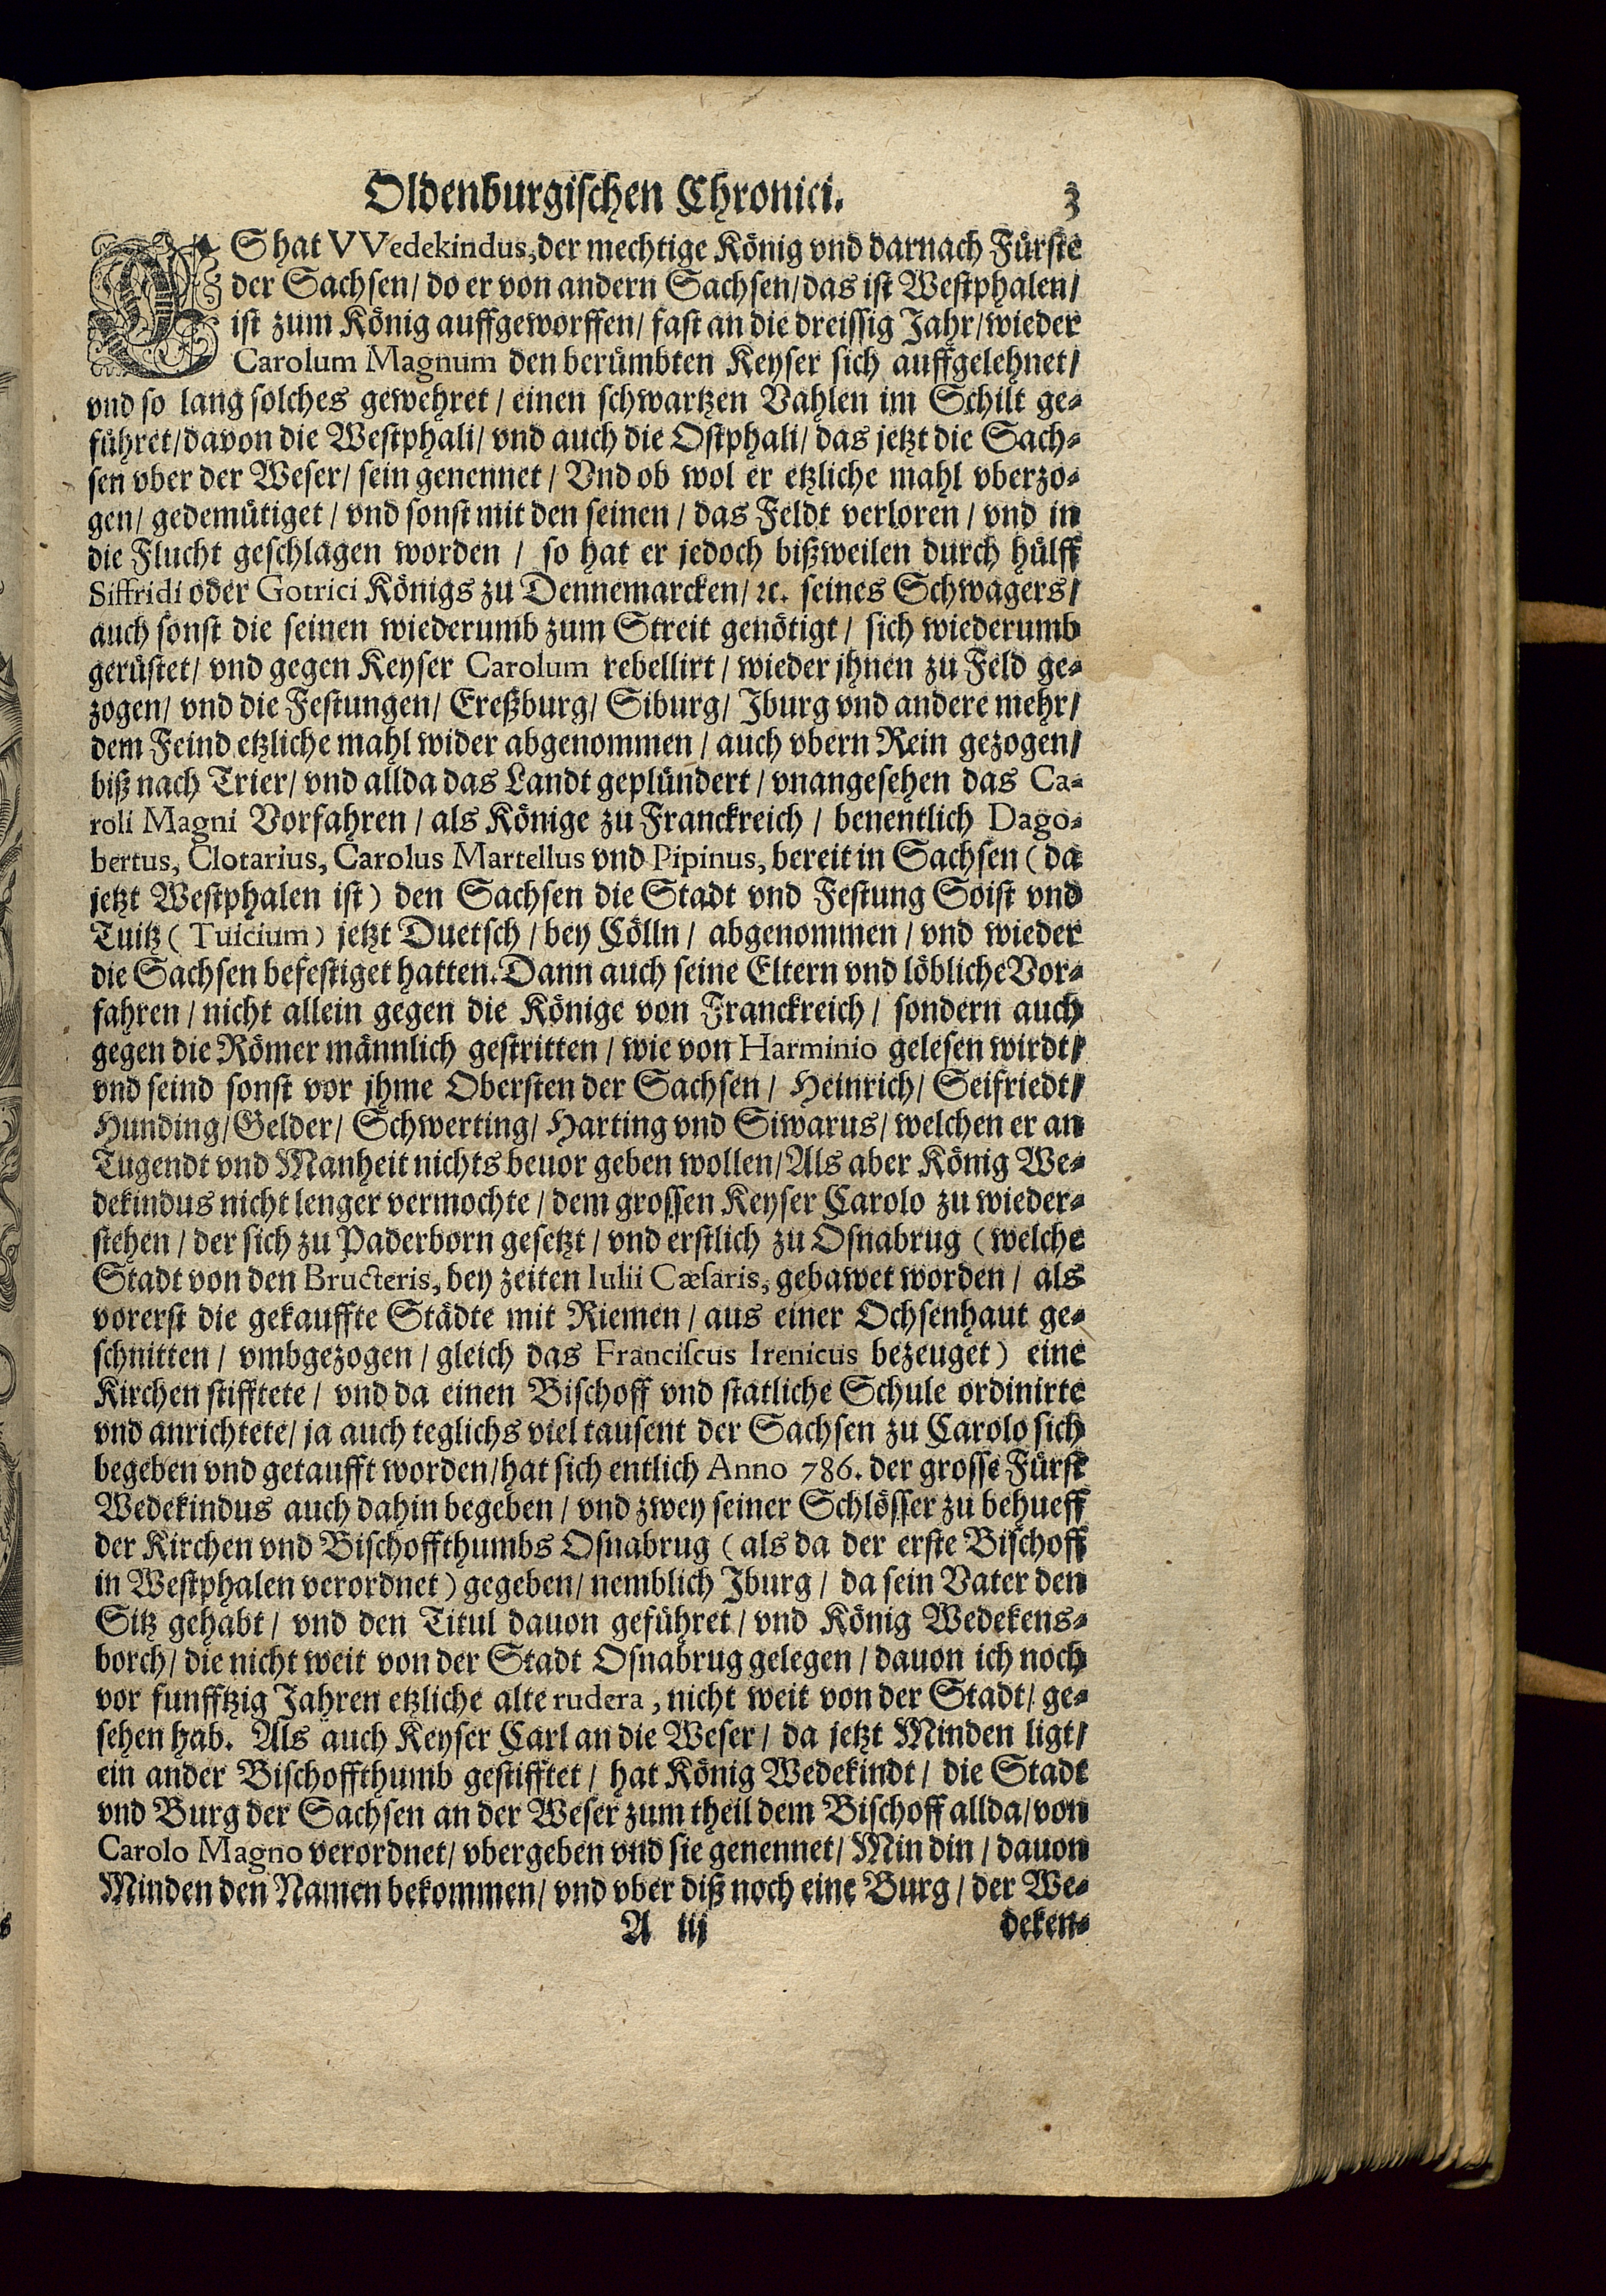 Oldenburgischen Chronici. 3
ES hat VVedekindus, der mechtige König vnd darnach Fürste
der Sachsen/ do er von andern Sachsen/ das ist Westphalen/
ist zum König auffgeworffen/ fast an die dreissig Jahr/ wieder
Carolum Magnum den berümbten Keyser sich auffgelehnet/
vnd so lang solches gewehret/ einen schwartzen Vahlen im Schilt ge-
führet/ davon die Westphali/ vnd auch die Ostphali/ das jetzt die Sach-
sen vber der Weser/ sein genennet/ Vnd ob wol er etzliche mahl vberzo-
gen/ gedemütiget/ vnd sonst mit den seinen/ das Feldt verloren/ vnd in
die Flucht geschlagen worden/ so hat er jedoch bißweilen durch hülff
Siffridi oder Gotrici Königs zu Dennemarcken/ ꝛc. seines Schwagers/
auch sonst die seinen wiederumb zum Streit genötigt/ sich wiederumb
gerüstet/ vnd gegen Keyser Carolum rebellirt/ wieder jhnen zu Feld ge-
zogen/ vnd die Festungen/ Ereßburg/ Siburg/ Jburg vnd andere mehr/
dem Feind etzliche mahl wider abgenommen/ auch vbern Rein gezogen/
biß nach Trier/ vnd allda das Landt geplündert/ vnangesehen das Ca-
roli Magni Vorfahren/ als Könige zu Franckreich/ benentlich Dago-
bertus, Clotarius, Carolus Martellus vnd Pipinus, bereit in Sachsen (da
jetzt Westphalen ist) den Sachsen die Stadt vnd Festung Soist vnd
Tuitz (Tuicium) jetzt Duetsch/ bey Cölln/ abgenommen/ vnd wieder
die Sachsen befestiget hatten. Dann auch seine Eltern vnd löbliche Vor-
fahren/ nicht allein gegen die Könige von Franckreich/ sondern auch
gegen die Römer männlich gestritten/ wie von Harminio gelesen wirdt/
vnd seind sonst vor jhme Obersten der Sachsen/ Heinrich/ Seifriedt/
Hunding/ Gelder/ Schwerting/ Harting vnd Siwarus/ welchen er an
Tugendt vnd Manheit nichts beuor geben wollen/ Als aber König We-
dekindus nicht lenger vermochte/ dem grossen Keyser Carolo zu wieder-
stehen/ der sich zu Paderborn gesetzt/ vnd erstlich zu Osnabrug (welche
Stadt von den Bructeris, bey zeiten Iulii Cæsaris, gebawet worden/ als
vorerst die gekauffte Städte mit Riemen/ aus einer Ochsenhaut ge-
schnitten/ vmbgezogen/ gleich das Franciscus Irenicus bezeuget) eine
Kirchen stifftete/ vnd da einen Bischoff vnd statliche Schule ordinirte
vnd anrichtete/ ja auch teglichs viel tausent der Sachsen zu Carolo sich
begeben vnd getaufft worden/ hat sich entlich Anno 786. der grosse Fürst
Wedekindus auch dahin begeben/ vnd zwey seiner Schlösser zu behueff
der Kirchen vnd Bischoffthumbs Osnabrug (als da der erste Bischoff
in Westphalen verordnet) gegeben/ nemblich Jburg/ da sein Vater den
Sitz gehabt/ vnd den Titul dauon geführet/ vnd König Wedekens-
borch/ die nicht weit von der Stadt Osnabrug gelegen/ dauon ich noch
vor funfftzig Jahren etzliche alte rudera, nicht weit von der Stadt/ ge-
sehen hab. Als auch Keyser Carl an die Weser/ da jetzt Minden ligt/
ein ander Bischoffthumb gestifftet/ hat König Wedekindt/ die Stadt
vnd Burg der Sachsen an der Weser zum theil dem Bischoff allda/ von
Carolo Magno verordnet/ vbergeben vnd sie genennet/ Min din/ dauon
Minden den Namen bekommen/ vnd vber diß noch eine Burg/ der We-
A iij deken-